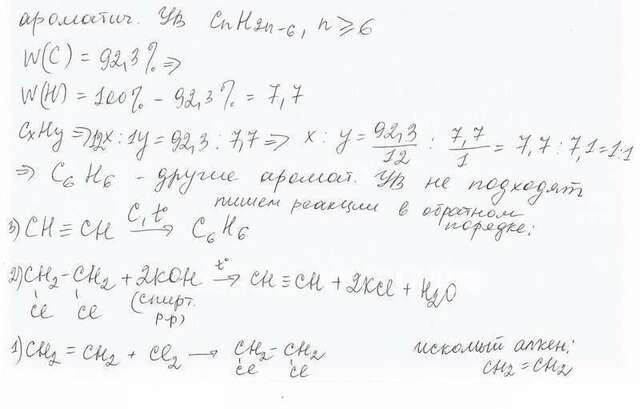 ароматич. УВ CnH2n-6, n ≥ 6
W(C) = 92,3% ⇒
W(H) = 100% - 92,3% = 7,7
CxHy ⇒ 12x : 1y = 92,3 : 7,7 ⇒ x : y = 92,3/12 : 7,7/1 = 7,7 : 7,1 = 1:1
⇒ C6H6 - другие аромат. УВ не подходят
пишем реакции в обратном порядке:
3) CH≡CH C, t° → C6H6
2) CH2-CH2 + 2KOH t° → CH≡CH + 2KCl + H2O
Cl Cl (спирт. р-р)
1) CH2=CH2 + Cl2 → CH2-CH2
Cl Cl
искомый алкен:
CH2=CH2